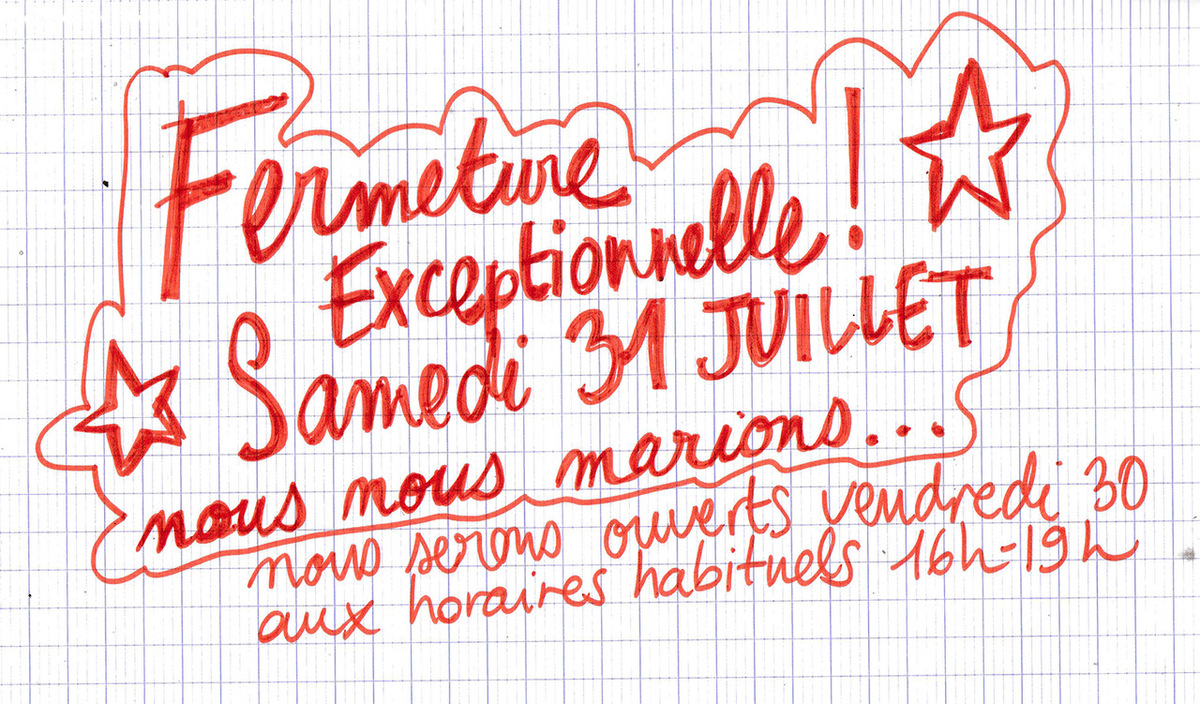 Fermeture
Exceptionnelle !
Samedi 31 JUILLET
nous nous marions...
nous serons ouverts vendredi 30
aux horaires habituels 16h-19h